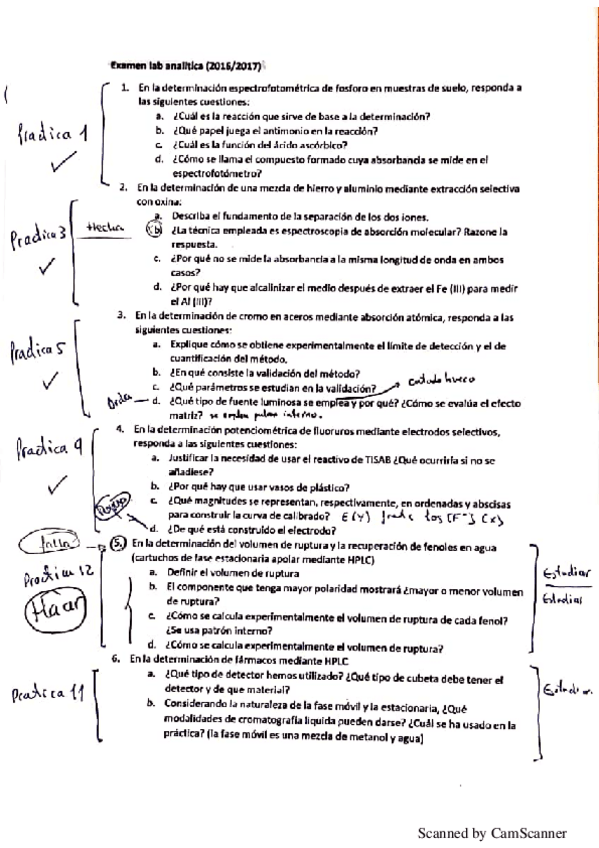 Examen lab analítica (2016/2017)
1. En la determinación espectrofotométrica de fosforo en muestras de suelo, responda a
las siguientes cuestiones:
a. ¿Cuál es la reacción que sirve de base a la determinación?
b. ¿Qué papel juega el antimonio en la reacción?
c. ¿Cuál es la función del ácido ascórbico?
d. ¿Cómo se llama el compuesto formado cuya absorbancia se mide en el
espectrofotómetro?
Practica 1
2. En la determinación de una mezcla de hierro y aluminio mediante extracción selectiva
con oxina:
a. Describa el fundamento de la separación de los dos iones.
b. ¿La técnica empleada es espectroscopia de absorción molecular? Razone la
respuesta.
c. ¿Por qué no se mide la absorbancia a la misma longitud de onda en ambos
casos?
d. ¿Por qué hay que alcalinizar el medio después de extraer el Fe (III) para medir
el Al (III)?
Practica 3
Hecha
3. En la determinación de cromo en aceros mediante absorción atómica, responda a las
siguientes cuestiones:
a. Explique cómo se obtiene experimentalmente el límite de detección y el de
cuantificación del método.
b. ¿En qué consiste la validación del método?
c. ¿Qué parámetros se estudian en la validación?
d. ¿Qué tipo de fuente luminosa se emplea y por qué? ¿Cómo se evalúa el efecto
matriz? se emplea patron interno.
Practica 5
catodo hueco
4. En la determinación potenciométrica de fluoruros mediante electrodos selectivos,
responda a las siguientes cuestiones:
a. Justificar la necesidad de usar el reactivo de TISAB ¿Qué ocurriría si no se
añadiese?
b. ¿Por qué hay que usar vasos de plástico?
c. ¿Qué magnitudes se representan, respectivamente, en ordenadas y abscisas
para construir la curva de calibrado? E (Y) frente log [F⁻] (X)
d. ¿De qué está construido el electrodo?
Practica 9
5. En la determinación del volumen de ruptura y la recuperación de fenoles en agua
(cartuchos de fase estacionaria apolar mediante HPLC)
a. Definir el volumen de ruptura
b. El componente que tenga mayor polaridad mostrará ¿mayor o menor volumen
de ruptura?
c. ¿Cómo se calcula experimentalmente el volumen de ruptura de cada fenol?
¿Se usa patrón interno?
d. ¿Cómo se calcula experimentalmente el volumen de ruptura?
falta
Practica 12
Estudiar
Estudiar
6. En la determinación de fármacos mediante HPLC
a. ¿Qué tipo de detector hemos utilizado? ¿Qué tipo de cubeta debe tener el
detector y de que material?
b. Considerando la naturaleza de la fase móvil y la estacionaria, ¿Qué
modalidades de cromatografía líquida pueden darse? ¿Cuál se ha usado en la
práctica? (la fase móvil es una mezcla de metanol y agua)
Practica 11
Estudiar.
Scanned by CamScanner